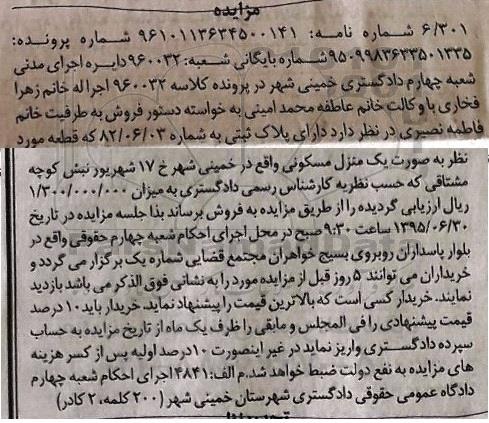 مزایده
۶/۳۰۱ شماره نامه: ۹۶۱۰۱۱۳۶۳۴۵۰۰۱۴۱ شماره پرونده:
۹۵۰۹۹۸۳۶۴۳۵۰۱۳۳۵ شماره بایگانی شعبه: ۹۶۰۰۳۲ دایره اجرای مدنی
شعبه چهارم دادگستری خمینی شهر در پرونده کلاسه ۹۶۰۰۳۲ اجرا له خانم زهرا
فخاری با وکالت خانم عاطفه محمد امینی به خواسته دستور فروش به طرفیت خانم
فاطمه نصیری در نظر دارد دارای پلاک ثبتی به شماره ۸۲/۰۶/۰۳ که قطعه مورد
نظر به صورت یک منزل مسکونی واقع در خمینی شهر خ ۱۷ شهریور نبش کوچه
مشتاقی که حسب نظریه کارشناس رسمی دادگستری به میزان ۱/۳۰۰/۰۰۰/۰۰۰
ریال ارزیابی گردیده را از طریق مزایده به فروش برساند بذا جلسه مزایده در تاریخ
۱۳۹۵/۰۶/۳۰ ساعت ۹:۳۰ صبح در محل اجرای احکام شعبه چهارم حقوقی واقع در
بلوار پاسداران روبروی بسیج خواهران مجتمع قضایی شماره یک برگزار می گردد و
خریداران می توانند ۵ روز قبل از مزایده مورد را به نشانی فوق الذکر می باشد بازدید
نمایند. خریدار کسی است که بالاترین قیمت را پیشنهاد نماید. خریدار باید ۱۰ درصد
قیمت پیشنهادی را فی المجلس و مابقی را ظرف یک ماه از تاریخ مزایده به حساب
سپرده دادگستری واریز نماید در غیر اینصورت ۱۰ درصد اولیه پس از کسر هزینه
های مزایده به نفع دولت ضبط خواهد شد. م الف: ۴۸۴۱ اجرای احکام شعبه چهارم
دادگاه عمومی حقوقی دادگستری شهرستان خمینی شهر (۲۰۰ کلمه، ۲ کادر)